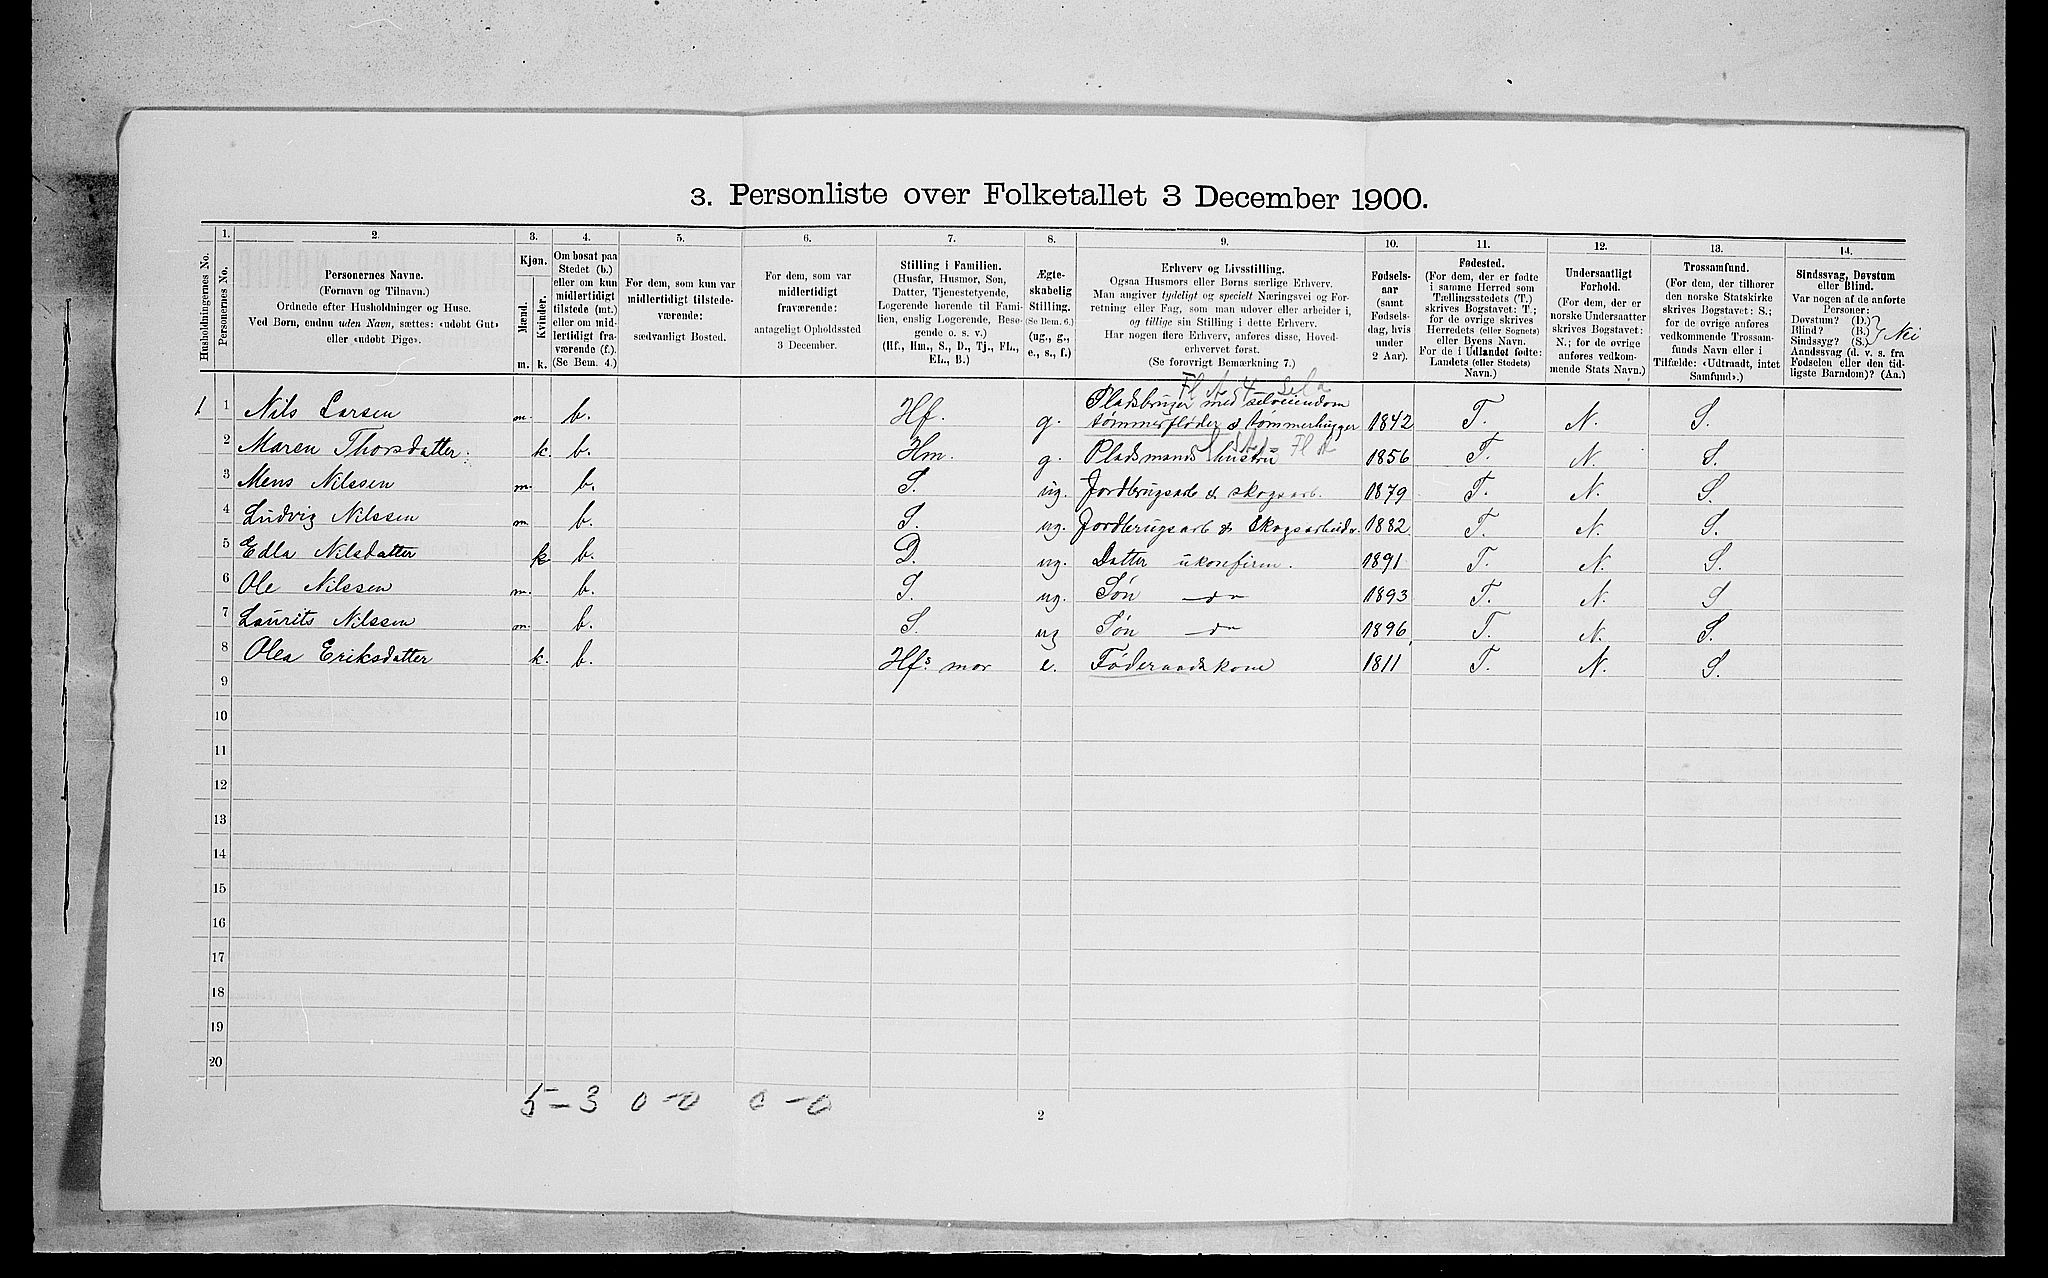 3. Personliste over Folketallet 3 December 1900.
Husholdningernes No.
1.
Personernes No.
2.
Personernes Navne.
(Fornavn og Tilnavn.)
Ordnede efter Husholdninger og Huse.
Ved Børn, endnu uden Navn, sættes: «udøbt Gut»
eller «udøbt Pige».
3.
Kjøn.
Mænd.
Kvinder.
m. k.
4.
Om bosat paa
Stedet (b.)
eller om kun
midlertidigt
tilstede (mt.)
eller om mid-
lertidigt fra-
værende (f.).
(Se Bem. 4.)
5.
For dem, som kun var
midlertidigt tilstede-
værende:
sædvanligt Bosted.
6.
For dem, som var
midlertidigt
fraværende:
antageligt Opholdssted
3 December.
7.
Stilling i Familien.
(Husfar, Husmor, Søn,
Datter, Tjenestetyende,
Logerende hørende til Fami-
lien, enslig Logerende, Besø-
gende o. s. v.)
(Hf., Hm., S., D., Tj., FL.,
EL., B.)
8.
Ægte-
skabelig
Stilling.
(Se Bem. 6.)
(ug., g.,
e., s., f.)
9.
Erhverv og Livsstilling.
Ogsaa Husmors eller Børns særlige Erhverv.
Man angiver tydeligt og specielt Næringsvei og For-
retning eller Fag, som man udøver eller arbeider i,
og tillige sin Stilling i dette Erhverv.
Har nogen flere Erhverv, anføres disse, Hoved-
erhvervet først.
(Se forøvrigt Bemærkning 7.)
10.
Fødsels-
aar
(samt
Fødsels-
dag, hvis
under
2 Aar).
11.
Fødested.
(For dem, der er fødte
i samme Herred som
Tællingsstedets (T.)
skrives Bogstavet: T.;
for de øvrige skrives
Herredets (eller Sognets)
eller Byens Navn.
For de i Udlandet fødte:
Landets (eller Stedets)
Navn.)
12.
Undersaatligt
Forhold.
(For dem, der er
norske Undersaatter
skrives Bogstavet:
N.; for de øvrige
anføres vedkom-
mende Stats Navn.)
13.
Trossamfund.
(For dem, der tilhører
den norske Statskirke
skrives Bogstavet: S.;
for de øvrige anføres
vedkommende Trossam-
funds Navn eller i
Tilfælde: «Udtraadt, intet
Samfund».)
14.
Sindssvag, Døvstum
eller Blind.
Var nogen af de anførte
Personer:
Døvstum? (D.)
Blind? (B.)
Sindssyg? (S.)
Aandssvag (d. v. s. fra
Fødselen eller den tid-
ligste Barndom)? (Aa.)
Nei
1 1 Nils Larsen m. b. Hf. g. Pladsbruger med selveiendom
tømmerfløder & tømmerhugger 1842 T. N. S.
2 Maren Thorsdatter. k. b. Hm. g. Pladsmands hustru 1856 T. N. S.
3 Mens Nilssen m. b. S. ug. Jordbrugsarb & skogsarb. 1879 T. N. S.
4 Ludvig Nilssen m. b. S. ug. Jordbrugsarb & Skogsarbeider. 1882 T. N. S.
5 Edla Nilsdatter k b. D. ug. Datter ukonfirm. 1891 T. N. S.
6 Ole Nilssen m. b. S. ug. Søn —do— 1893 T. N. S
7 Laurits Nilssen m. b. S. ug Søn —do— 1896 T. N. S.
8 Olea Eriksdatter k. b. Hfs mor e. Føderaadskone 1811 T. N. S.
9
10
11
12
13
14
15
16
17
18
19
20
5-3 0-0 0-0
2